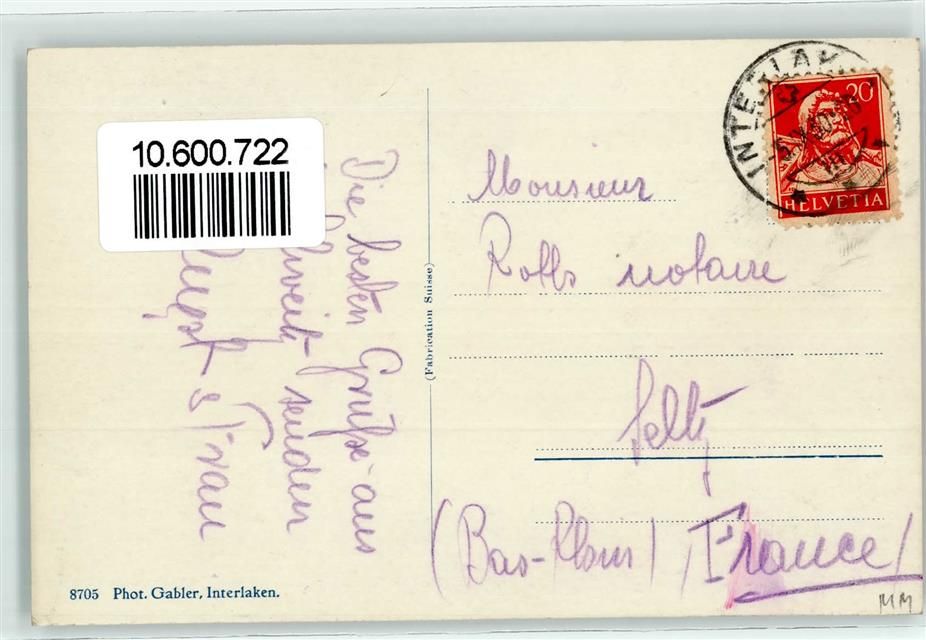 10.600.722
INTERLAKEN
20
HELVETIA
Die besten Grüße aus
Schweiz senden
& Frau
(Fabrication Suisse)
Monsieur
Rolls notaire
Seltz
(Bas-Rhin) (France)
8705 Phot. Gabler, Interlaken.
MM